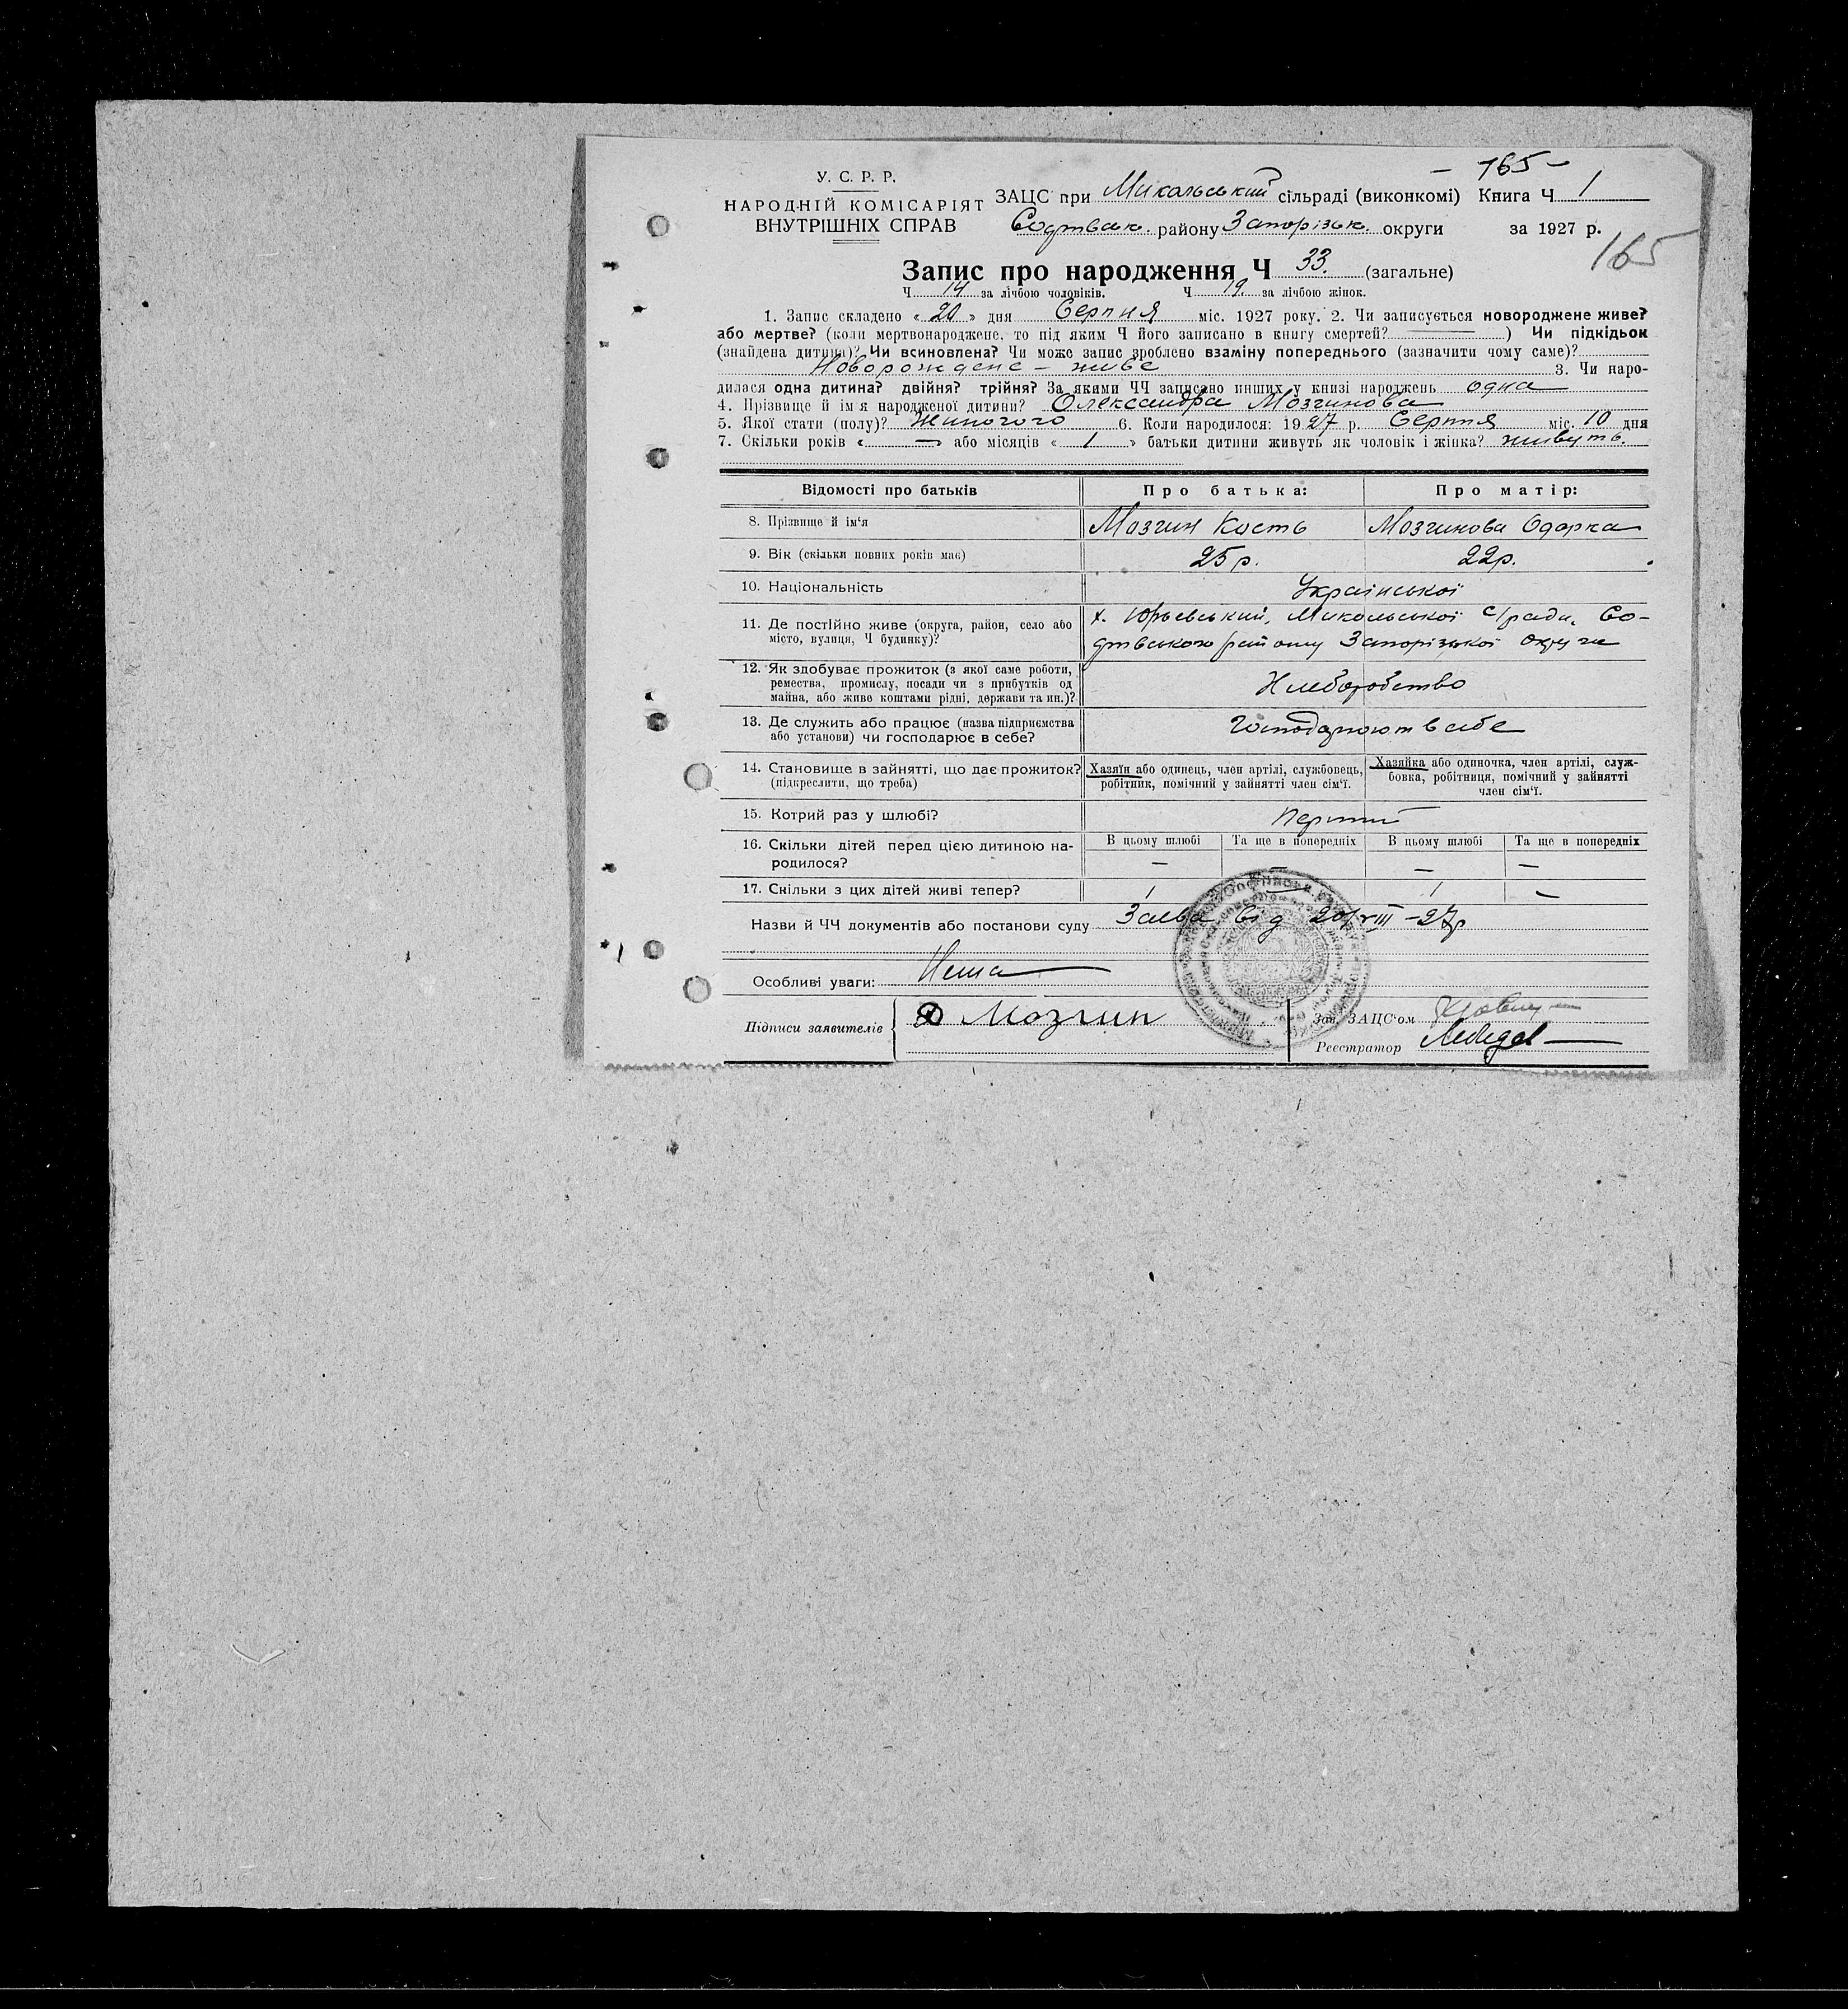 - 165 -
У. С. Р. Р.
НАРОДНІЙ КОМІСАРІЯТ
ВНУТРІШНІХ СПРАВ
ЗАЦС при Микольський сільраді (виконкомі) Книга Ч 1
району Запорізьк. округи за 1927 р.
165
Запис про народження Ч 33. (загальне)
Ч 14 за лічбою чоловіків. Ч 19. за лічбою жінок.
1. Запис складено « 20 » дня Серпня міс. 1927 року. 2. Чи записується новороджене живе?
або мертве? (коли мертвонароджене, то під яким Ч його записано в книгу смертей? ) Чи підкідьок
(знайдена дитина)? Чи всиновлена? Чи може запис зроблено взаміну попереднього (зазначити чому саме)?
Новорождене - живе 3. Чи наро-
дилася одна дитина? двійня? трійня? За якими ЧЧ записано инших у книзі народжень одна
4. Прізвище й ім я народженої дитини? Олександра Мозгинова
5. Якої стати (полу)? Жиночого 6. Коли народилося: 1927 р. Серпня міс. 10 дня
7. Скільки років « — » або місяців « 1 » батьки дитини живуть як чоловік і жінка? живуть.
Відомості про батьків Про батька: Про матір:
8. Прізвище й ім'я Мозгин Кость Мозгинова Одарка
9. Вік (скільки повних років має) 25 р. 22 р.
10. Національність Української
11. Де постійно живе (округа, район, село або х. Юрьевський, Микольської с/ради, Со-
місто, вулиця, Ч будинку)? району Запорізької округи
12. Як здобуває прожиток (з якої саме роботи,
ремества, промислу, посади чи з прибутків од Хлеборобство
майна, або живе коштами рідні, держави та ин.)?
13. Де служить або працює (назва підприємства
або установи) чи господарює в себе? Господарюют в себе
14. Становище в зайнятті, що дає прожиток? Хазяїн або одинець, член артілі, службовець, Хазяйка або одиночка, член артілі, служ-
(підкреслити, що треба) робітник, помічний у зайнятті член сім'ї. бовка, робітниця, помічний у зайнятті
член сім'ї.
15. Котрий раз у шлюбі? Перший
16. Скільки дітей перед цією дитиною на- В цьому шлюбі Та ще в попередніх В цьому шлюбі Та ще в попередніх
родилося? — — — —
17. Скільки з цих дітей живі тепер? 1 — 1 —
Назви й ЧЧ документів або постанови суду Заява Від 20/VIII-27р
Особливі уваги: Нема
Підписи заявителів Мозгин
Зав. ЗАЦС'ом
Реєстратор